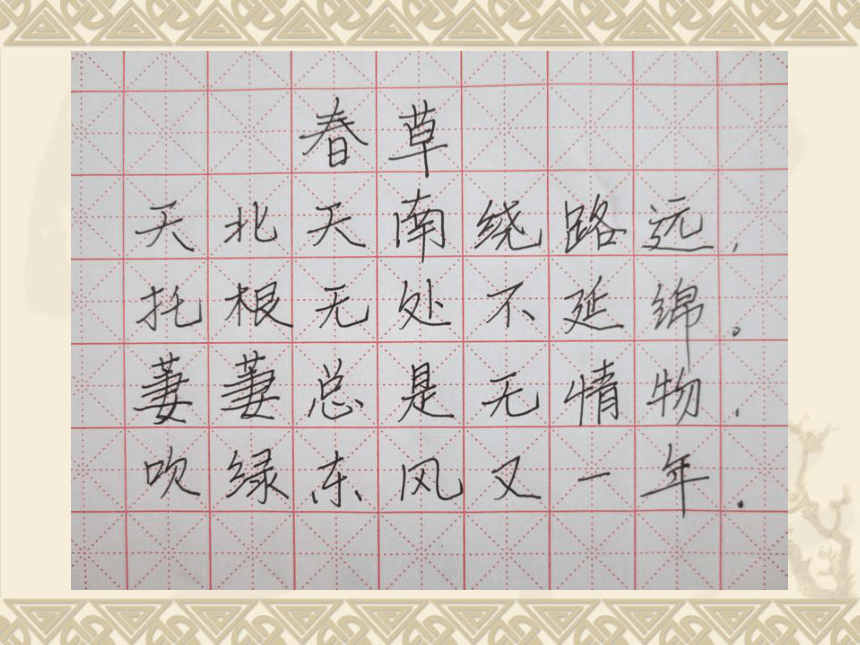 春草
天北天南绕路远,
托根无处不延绵。
萋萋总是无情物,
吹绿东风又一年.